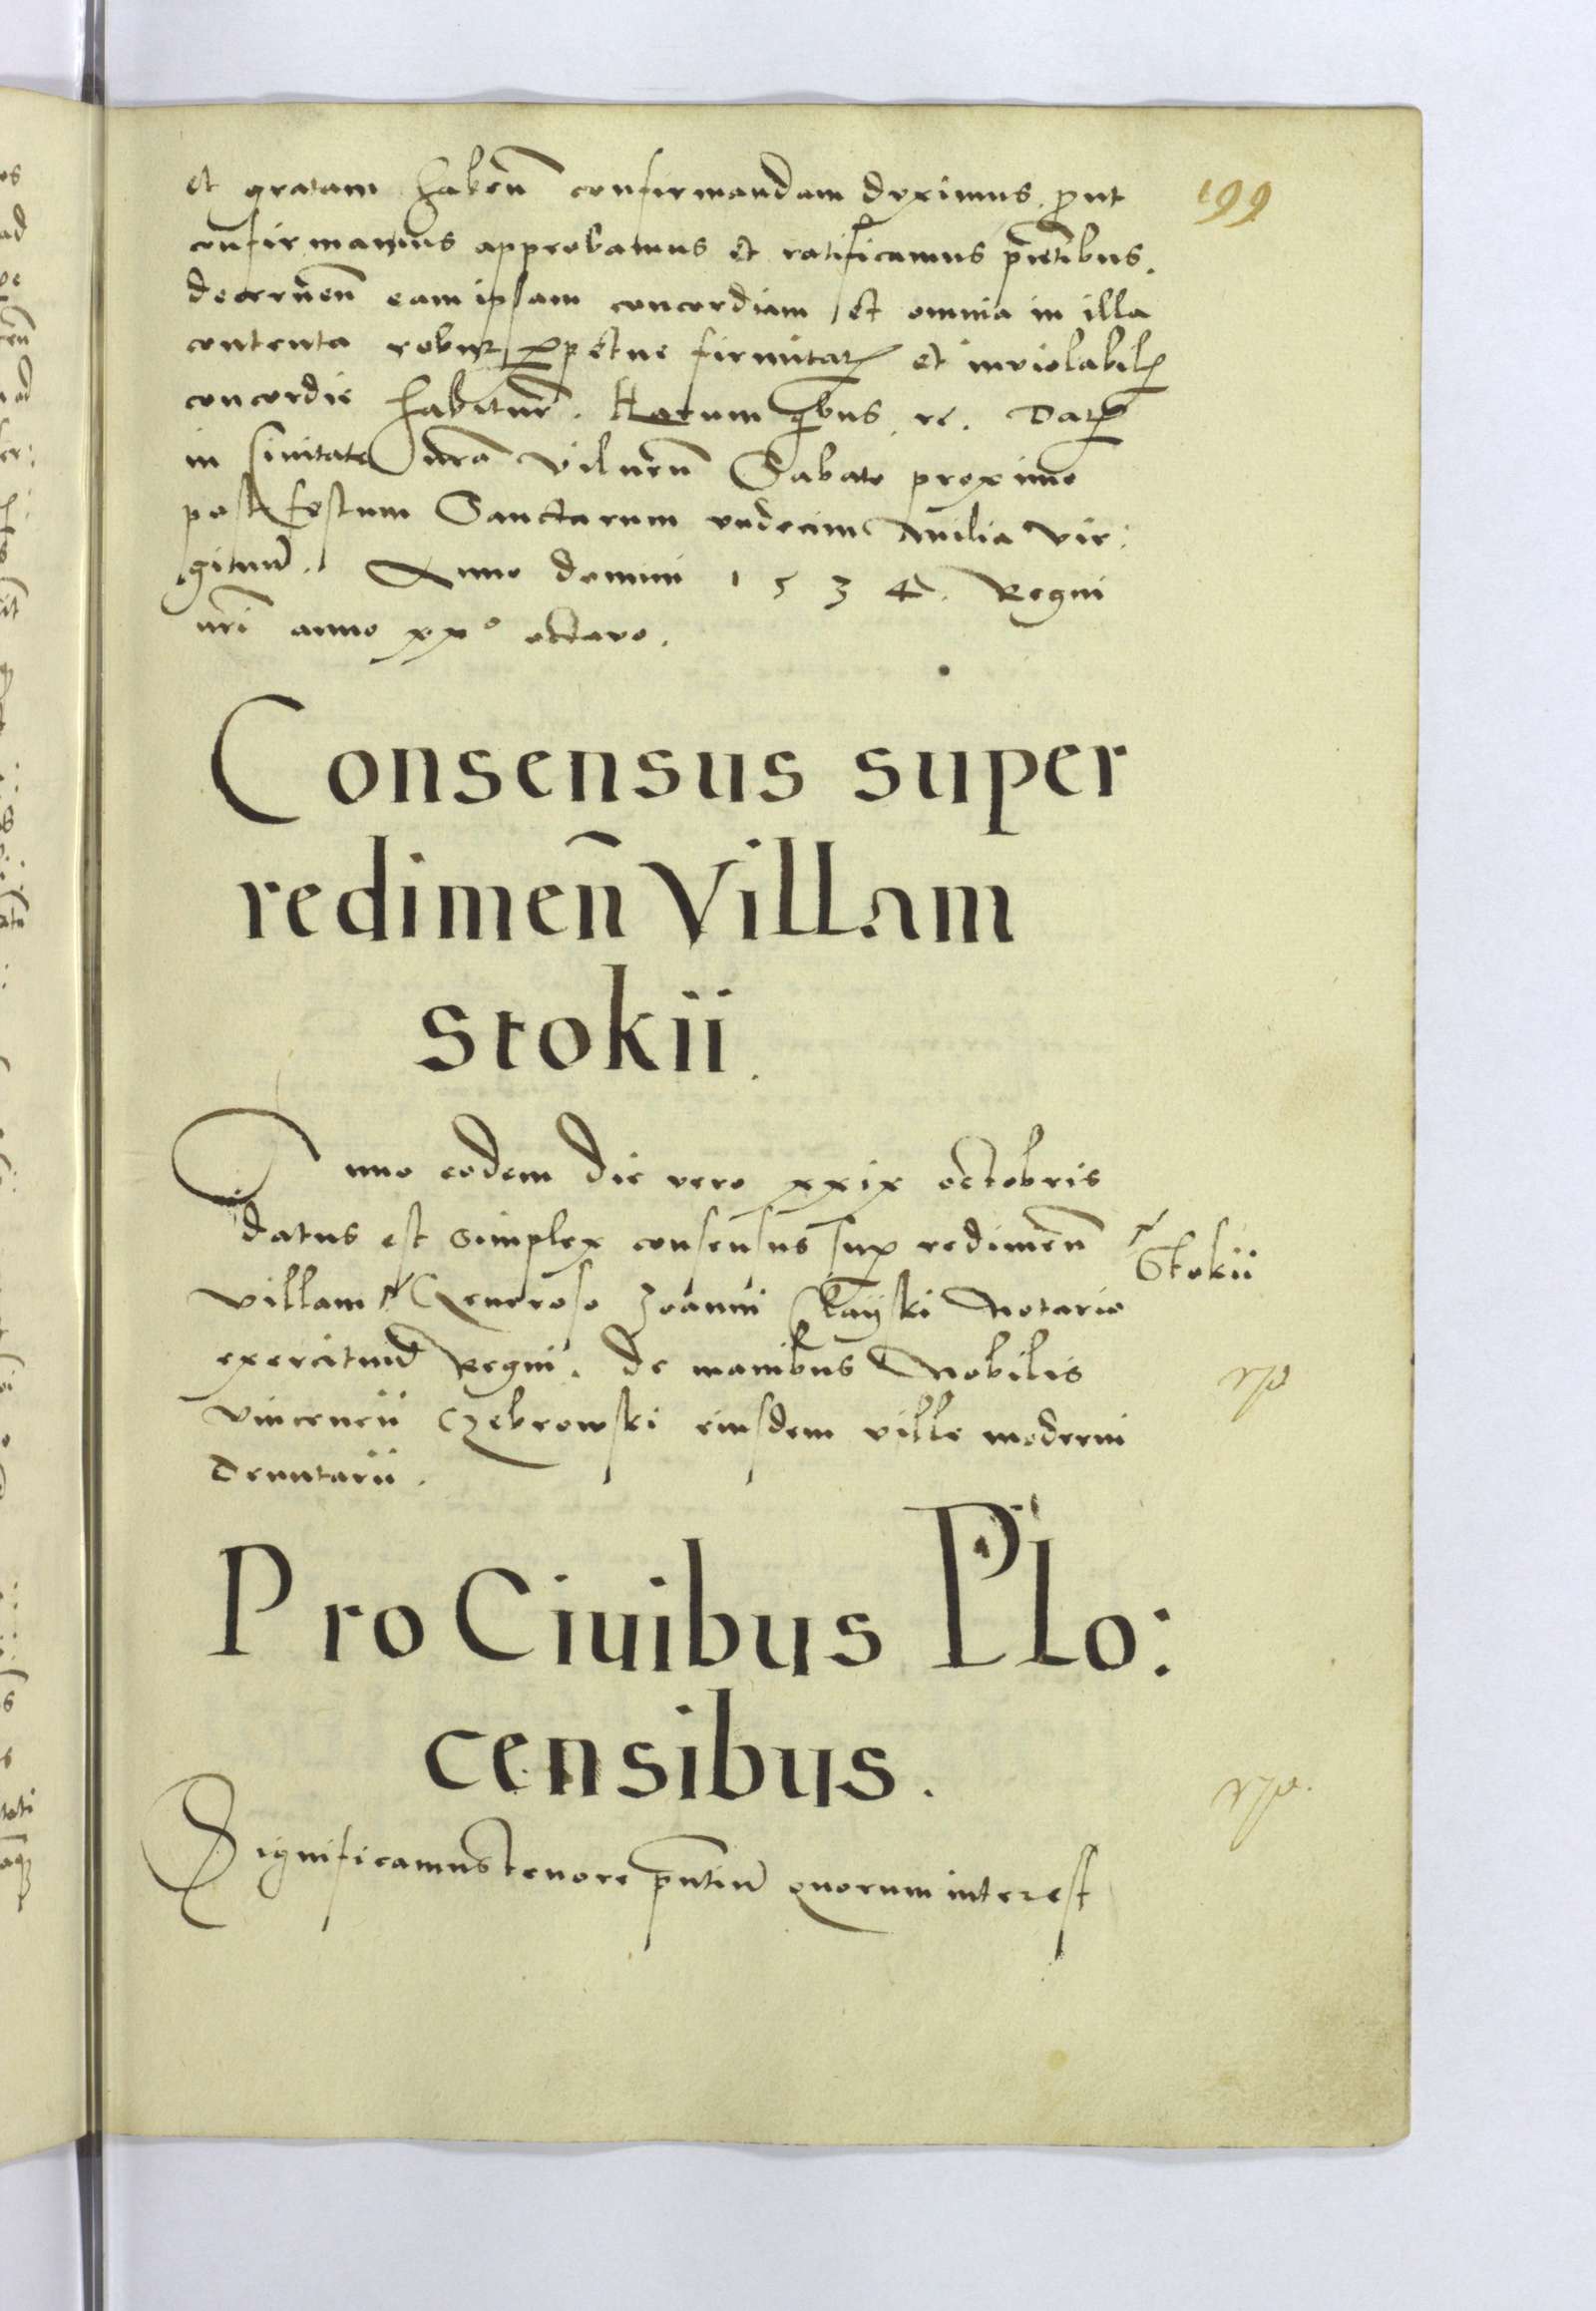 et gratam haben̄ confirmandam dyximus, p̄ut
199
confirmamus approbamus et ratificamus p̄ntibus.
decernen̄ eam ipsam concordiam et omnia in illa
contenta robur p̱petue firmitatꝭ et inviolabilꝭ
concordie habitur̄. Harum q̄bus rc. Datꝭ
in Civitate nr̄a Vilnen̄ Sabato proximo
post festum Sanctarum undecim Milia Vir:
ginum. Anno domini 1534. Regni
nr̄i anno xxº octavo.
Consensus super
redimen̄ Villam
Stokii.
Anno eodem die vero xxix octobris
datus est simplex consensus sup̱ redimen̄
Stokii
villam Generoso Joanni Stayski Notario
exercituum Regni. de manibus Nobilis
Vincencii Czebrowski eiusdem ville moderni
Tenutarii.
Pro Civibus Plo:
censibus.
Significamus tenore p̄ntium quorum interest